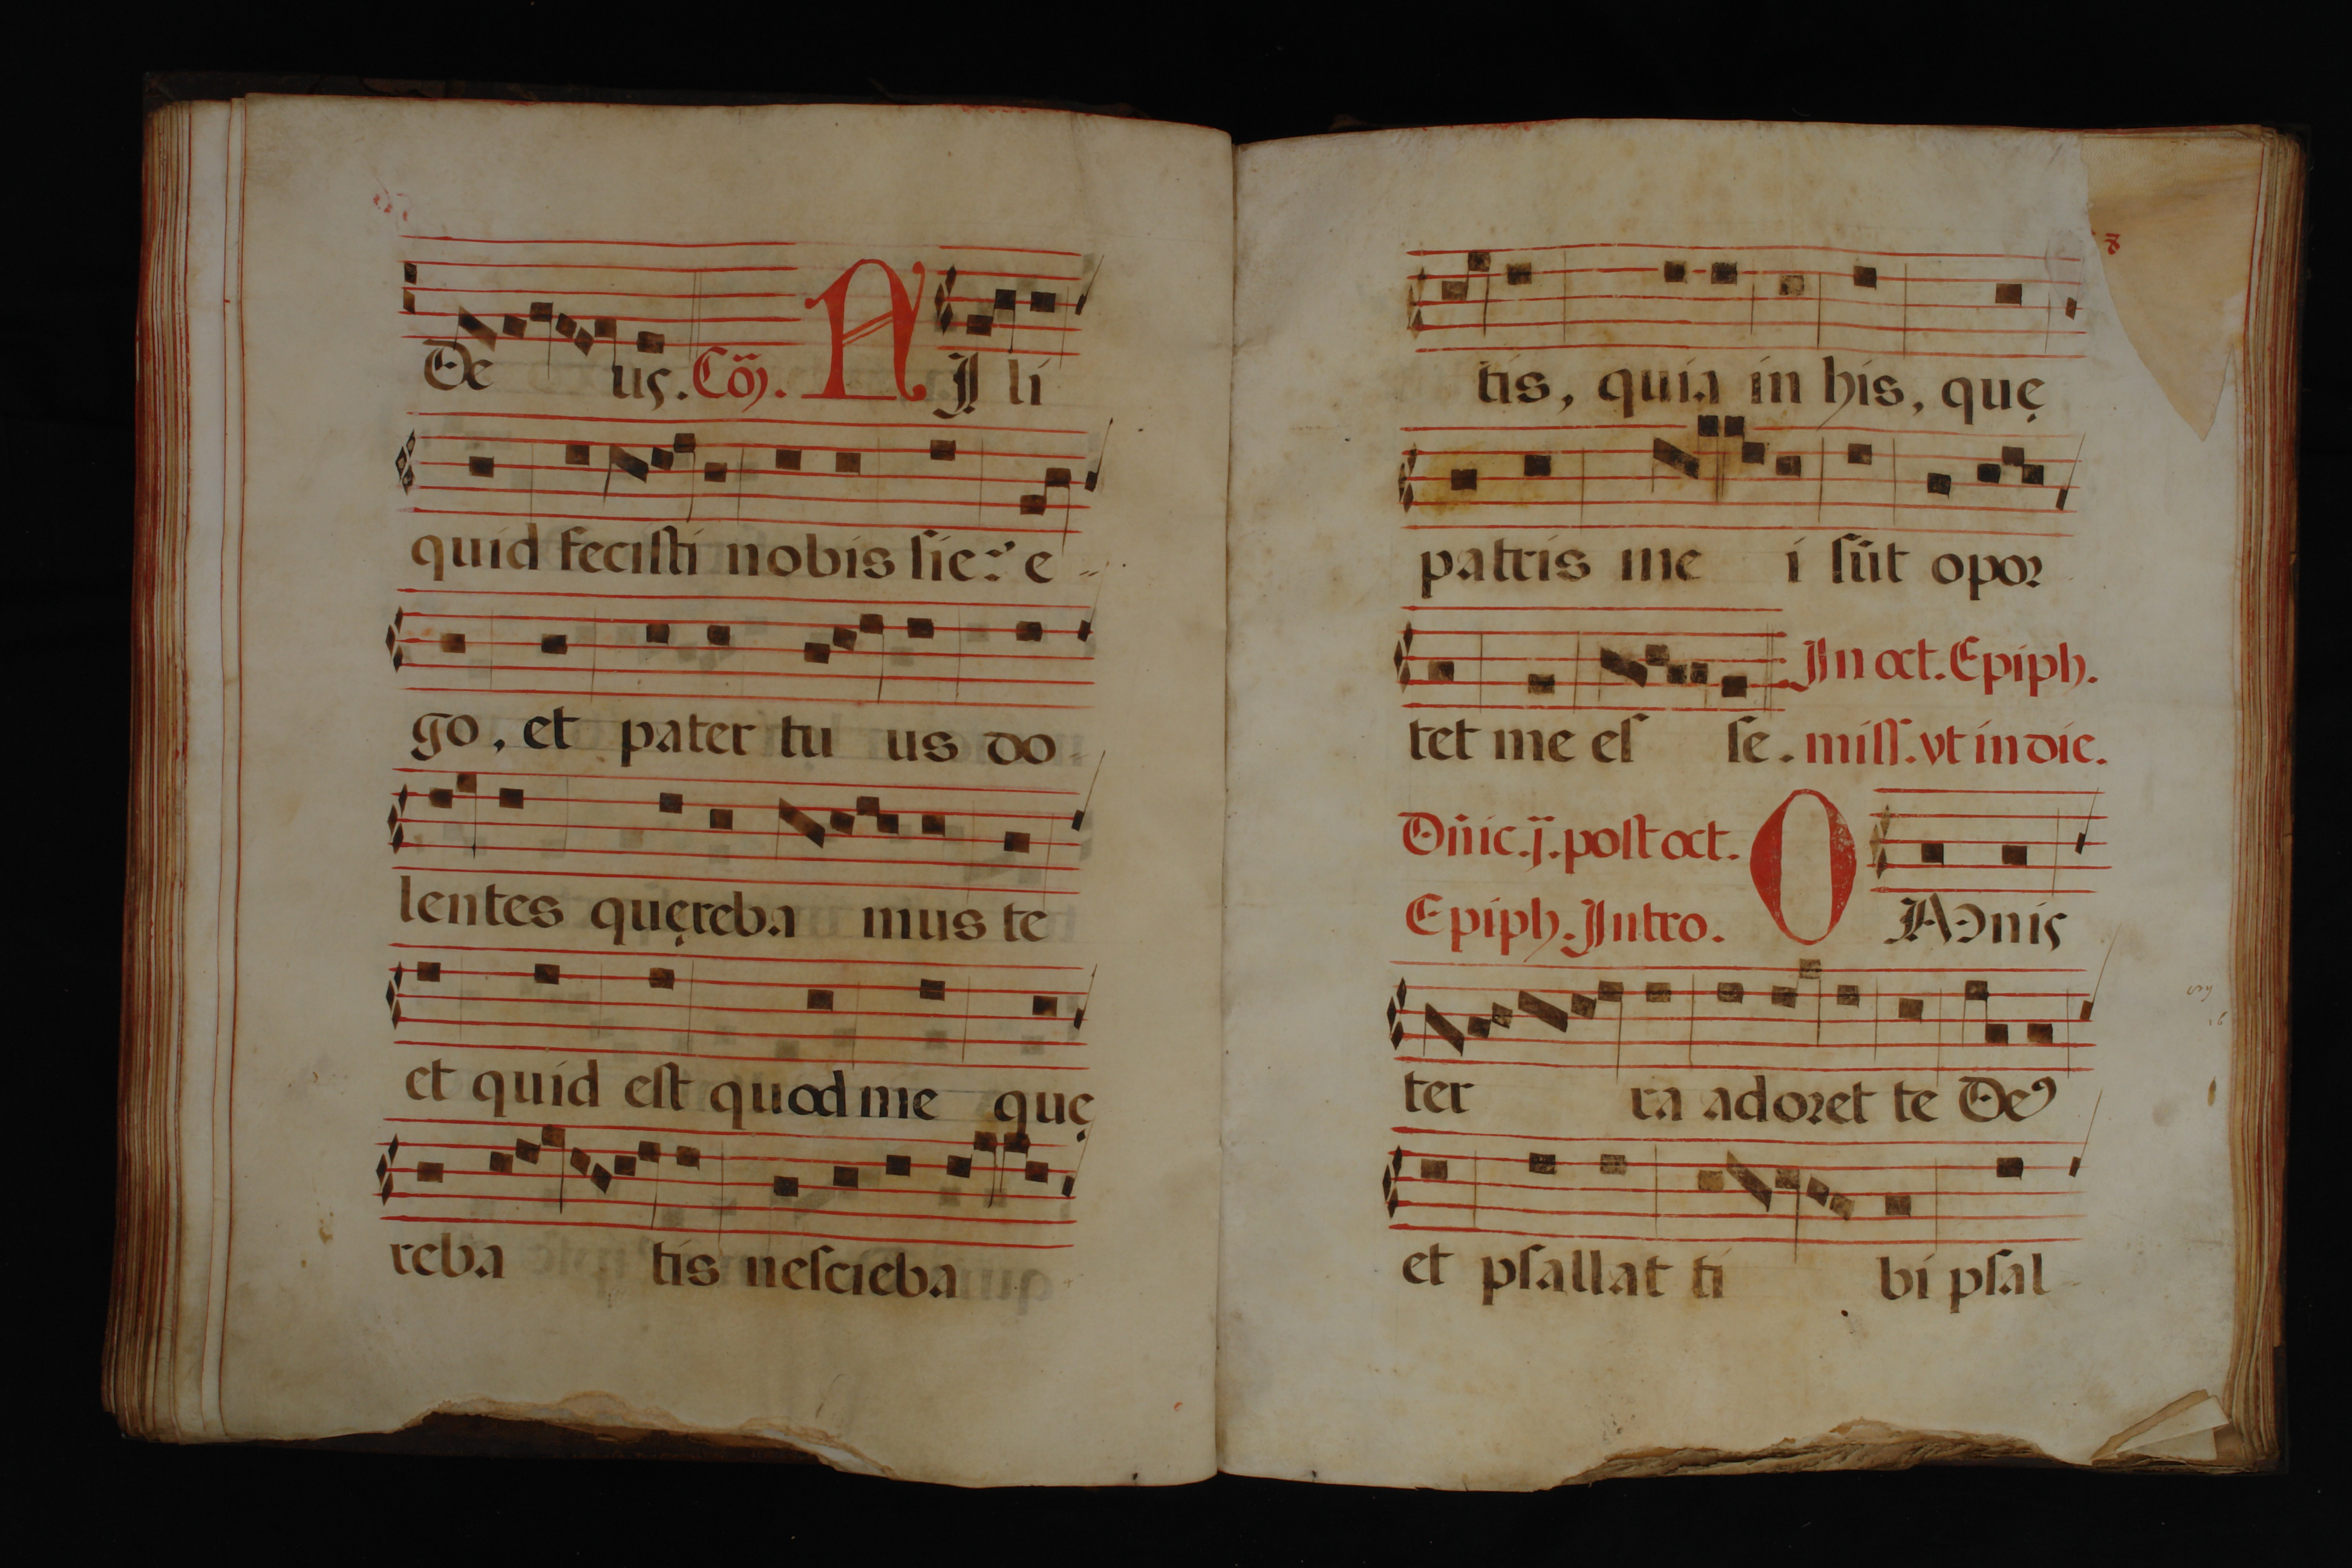 De us. Cõ. A Ili
quid fecisti nobis sic? e
go, et pater tu us do
lentes quęreba mus te
et quid est quod me quę
reba tis nescieba
tis, quia in his, quę
patris me i sũt opor
In oct. Epiph.
tet me es se. miss. vt in die.
Dñic. ij. post oct. O
Epiph. Intro. Mnis
ter ra adoret te Deꝰ
et psallat ti bi psal